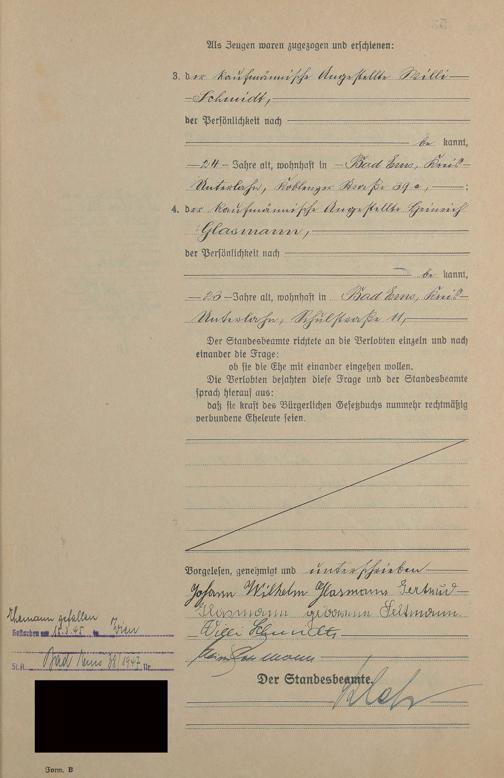 Als Zeugen waren zugezogen und erschienen:
3. der kaufmännische Angestellte Willi
Schmidt,
der Persönlichkeit nach
be kannt,
24 Jahre alt, wohnhaft in Bad Ems, Kreis
Unterlahn, Koblenzer Straße 39a, ;
4. der kaufmännische Angestellte Heinrich
Glasmann,
der Persönlichkeit nach
be kannt,
23 Jahre alt, wohnhaft in Bad Ems, Kreis
Unterlahn, Schulstraße 11,
Der Standesbeamte richtete an die Verlobten einzeln und nach
einander die Frage:
ob sie die Ehe mit einander eingehen wollen.
Die Verlobten bejahten diese Frage und der Standesbeamte
sprach hierauf aus:
daß sie kraft des Bürgerlichen Gesetzbuchs nunmehr rechtmäßig
verbundene Eheleute seien.
Vorgelesen, genehmigt und unterschrieben
Johann Wilhelm Glasmann Gertrud
Glasmann geborene
Willi Schmidt,
Ehemann gefallen
am in Wien
St.A. Bad Ems 38/1947 Nr.
Der Standesbeamte.
Form. B